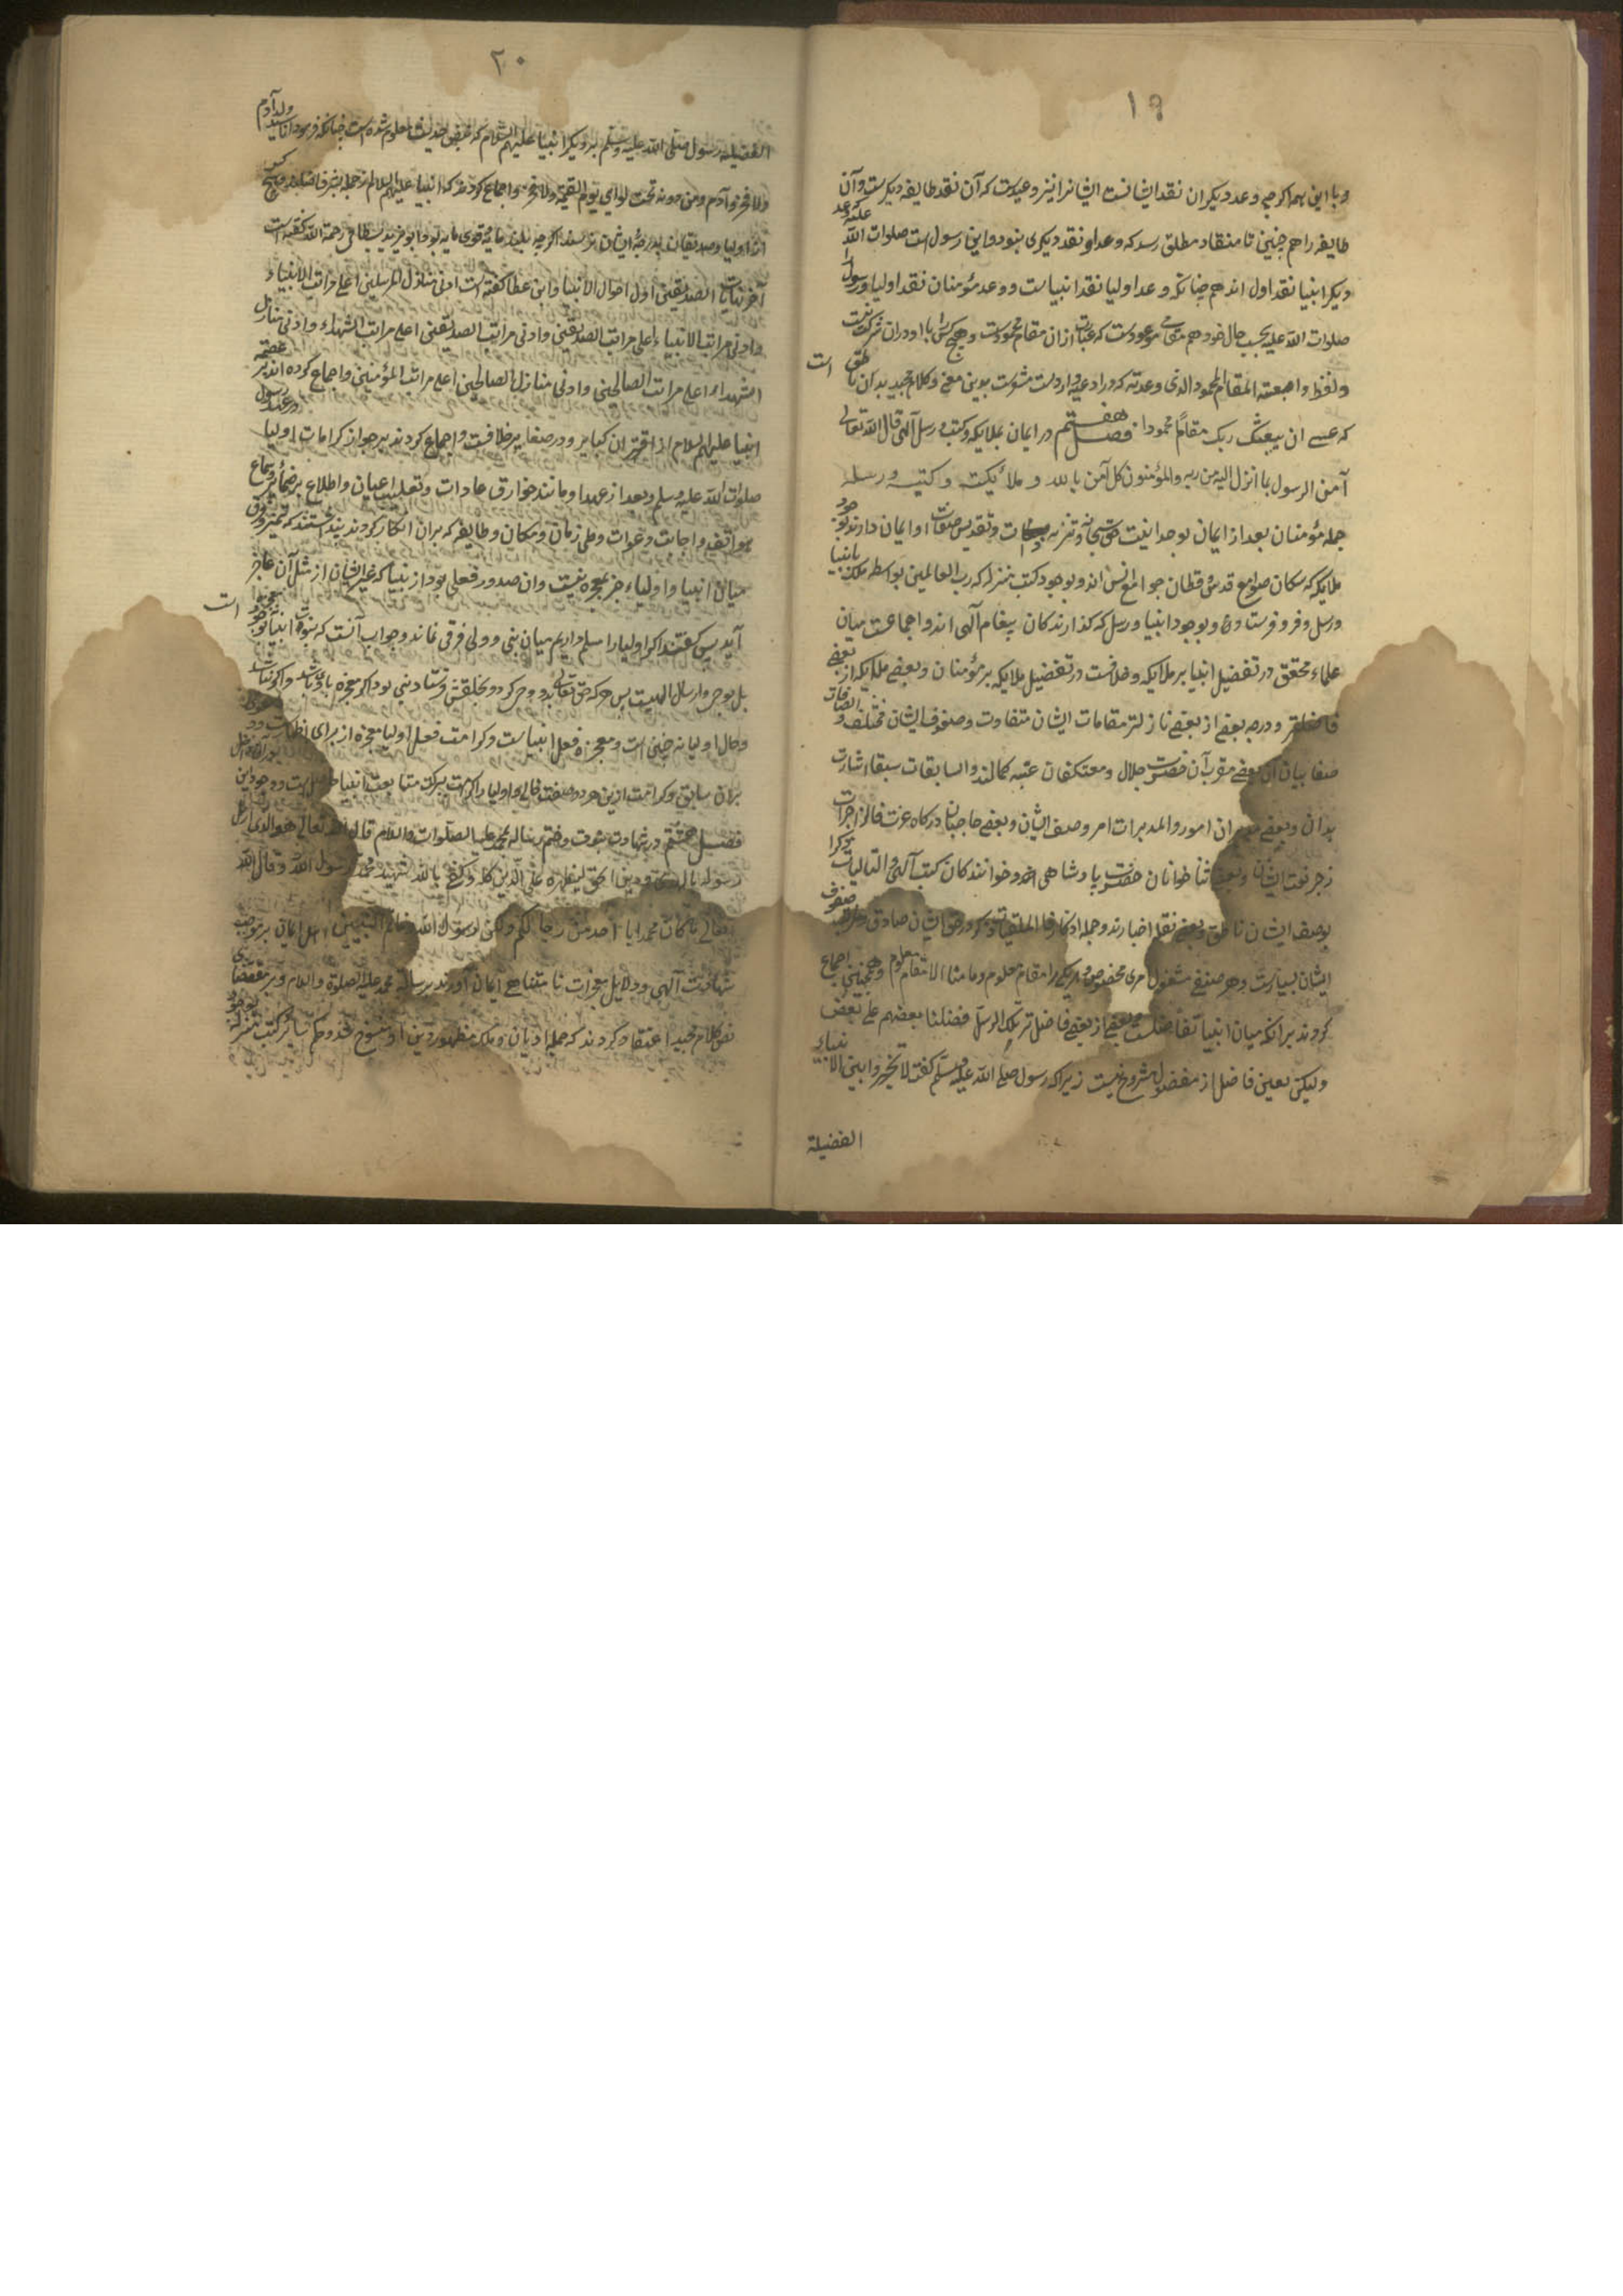 ١٩
و با این همه اگرچه وعد دیگران نقد ایشانست ایشانرا نیز وعدیست که آن نقد طایفه دیگرست و آن
طایفه را هم چنین تا منقاد مطلق رسد که وعد او نقد دیگری نبود و این رسول است صلوات الله علیه که وعد
دیگر انبیا نقد اول اند همچنانکه وعد اولیا نقد انبیاست و وعد مؤمنان نقد اولیا و رسول را
صلوات الله علیه بحسب حال خود هم مقامی موعودست که عبارت از ان مقام محمودست و هیچ کس را با او در ان شرکت نیست
ولفظ وابعثه المقام المحمود الذی وعدته که در ادعیه واردست مشرست بدین معنی و کلام مجید بدان ناطق است
که عسی ان یبعثک ربک مقاما محمودا فصل هفتم در ایمان بملایکه و کتب و رسل الهی قال الله تعالی
آمن الرسول بما انزل الیه من ربه والمؤمنون کل آمن بالله و ملائکته و کتبه و رسله
جمله مؤمنان بعد از ایمان بوحدانیت حق سبحانه و تنزیه ذات و تقدیس صفات او ایمان دارند بوجود
ملایکه که سکان صوامع قدس و قطان جوامع انس اند و بوجود کتب منزله که رب العالمین بواسطه ملک بانبیا
و رسل فرو فرستاد و بوجود انبیا و رسل که گذارندگان پیغام آلهی اند و اجماعست میان
علماء محقق در تفضیل انبیا بر ملایکه و خلافست در تفضیل ملایکه بر مؤمنان و بعضی ملایکه از بعضی
فاضلتر و درجه بعضی از بعضی نازلتر مقامات ایشان متفاوت و صفوف ایشان مختلف والصافات
صفا بیان آن بعضی مقربان حضرت جلال و معتکفان عتبه کمالند والسابقات سبقا اشارت
بدان و بعضی مدبران امور والمدبرات امرا وصف ایشان و بعضی حاجبان درگاه عزت فالزاجرات
زجرا نعت ایشان و بعضی ثنا خوانان حضرت پادشاهی و خوانندگان کتب آلهی والتالیات ذکرا
بوصف ایشان ناطق و بعضی نقله اخبارند و حمله اذکار فالملقیات ذکرا در حق ایشان صادق و صفوف
ایشان بسیارست و هر صنفی مشغول امری مخصوص و هر یکی را مقام معلوم و ما منا الا له مقام معلوم و همچنین اجماع
کردند بر آنکه میان انبیا تفاضلست و بعضی از بعضی فاضل تر تلک الرسل فضلنا بعضهم علی بعض
ولیکن تعیین فاضل از مفضول مشروع نیست زیرا که رسول صلی الله علیه وسلم گفت لا تخیروا بین الانبیاء
الفضیلة
٢٠
الفضیلة رسول صلی الله علیه وسلم بر دیگر انبیا علیهم السلام که بنص حدیث معلوم شده است چنانکه فرمود انا سید ولد آدم
ولا فخر و آدم ومن دونه تحت لوائی یوم القیمة ولا فخر و اجماع کردند که انبیا علیهم السلام از جمله بشر فاضلند و هیچ کس
از اولیا و صدیقان بدرجه ایشان نرسند اگرچه بلند پایه و قوی مایه بود و ابو یزید بسطامی رحمة الله گفته است
آخر نهایات الصدیقین اول احوال الانبیا و ابن عطا گفته است ادنی منازل المرسلین اعلی مراتب الانبیاء
وادنی مراتب الانبیاء اعلی مراتب الصدیقین وادنی مراتب الصدیقین اعلی مراتب الشهداء وادنی منازل
الشهداء اعلی مراتب الصالحین وادنی منازل الصالحین اعلی مراتب المؤمنین و اجماع کرده اند بر عصمة
انبیا علیهم السلام از اقتران کبایر و در صغایر خلافست و اجماع کردند بر جواز کرامات اولیا در عهد رسول
صلوات الله علیه وسلم و بعد از عهد او مانند خوارق عادات و تقلیب اعیان و اطلاع بر ضمائر و سماع
هواتف و اجابت دعوات و طی زمان و مکان و طایفه که بران انکار کردند پنداشتند که تمیز و فرق
میان انبیا و اولیاء جز بمعجزه نیست و ان صدور فعلی بود از نبی که غیر ایشان از مثل آن عاجز
آید پس گفتند اگر اولیا را مسلم داریم میان نبی و ولی فرقی نماند و جواب آنست که نبوت انبیا نه بوجود معجزه است
بل بوحی و ارسال الهیست پس هر که حق تعالی بدو وحی کرد و بخلقش فرستاد نبی بود اگر معجزه با وی باشد و اگر نباشد
و حال اولیا نه چنین است و معجزه فعل انبیاست و کرامت فعل اولیا معجزه از برای اظهار
بران سابق و کرامت ازین هر دو صفت خالی و اولیا را کرامت ببرکت متابعت انبیا حاصل است
فصل هشتم در شهادت بنبوت و ختم رسالة محمد علیه الصلوات والسلام قال الله تعالی هو الذی ارسل
رسوله بالهدی و دین الحق لیظهره علی الدین کله وکفی بالله شهیدا محمد رسول الله و قال الله
تعالی ما کان محمد ابا احد من رجالکم ولکن رسول الله و خاتم النبیین اهل ایمان بموجب
شهادت آلهی و دلایل معجزات نامتناهی ایمان آوردند برسالت محمد علیه الصلوة والسلام و بر مقتضای
نص کلام مجید اعتقاد کردند که جمله ادیان و ملل بظهور دین او منسوخ شد و حکم سایر کتب منزله بوجود